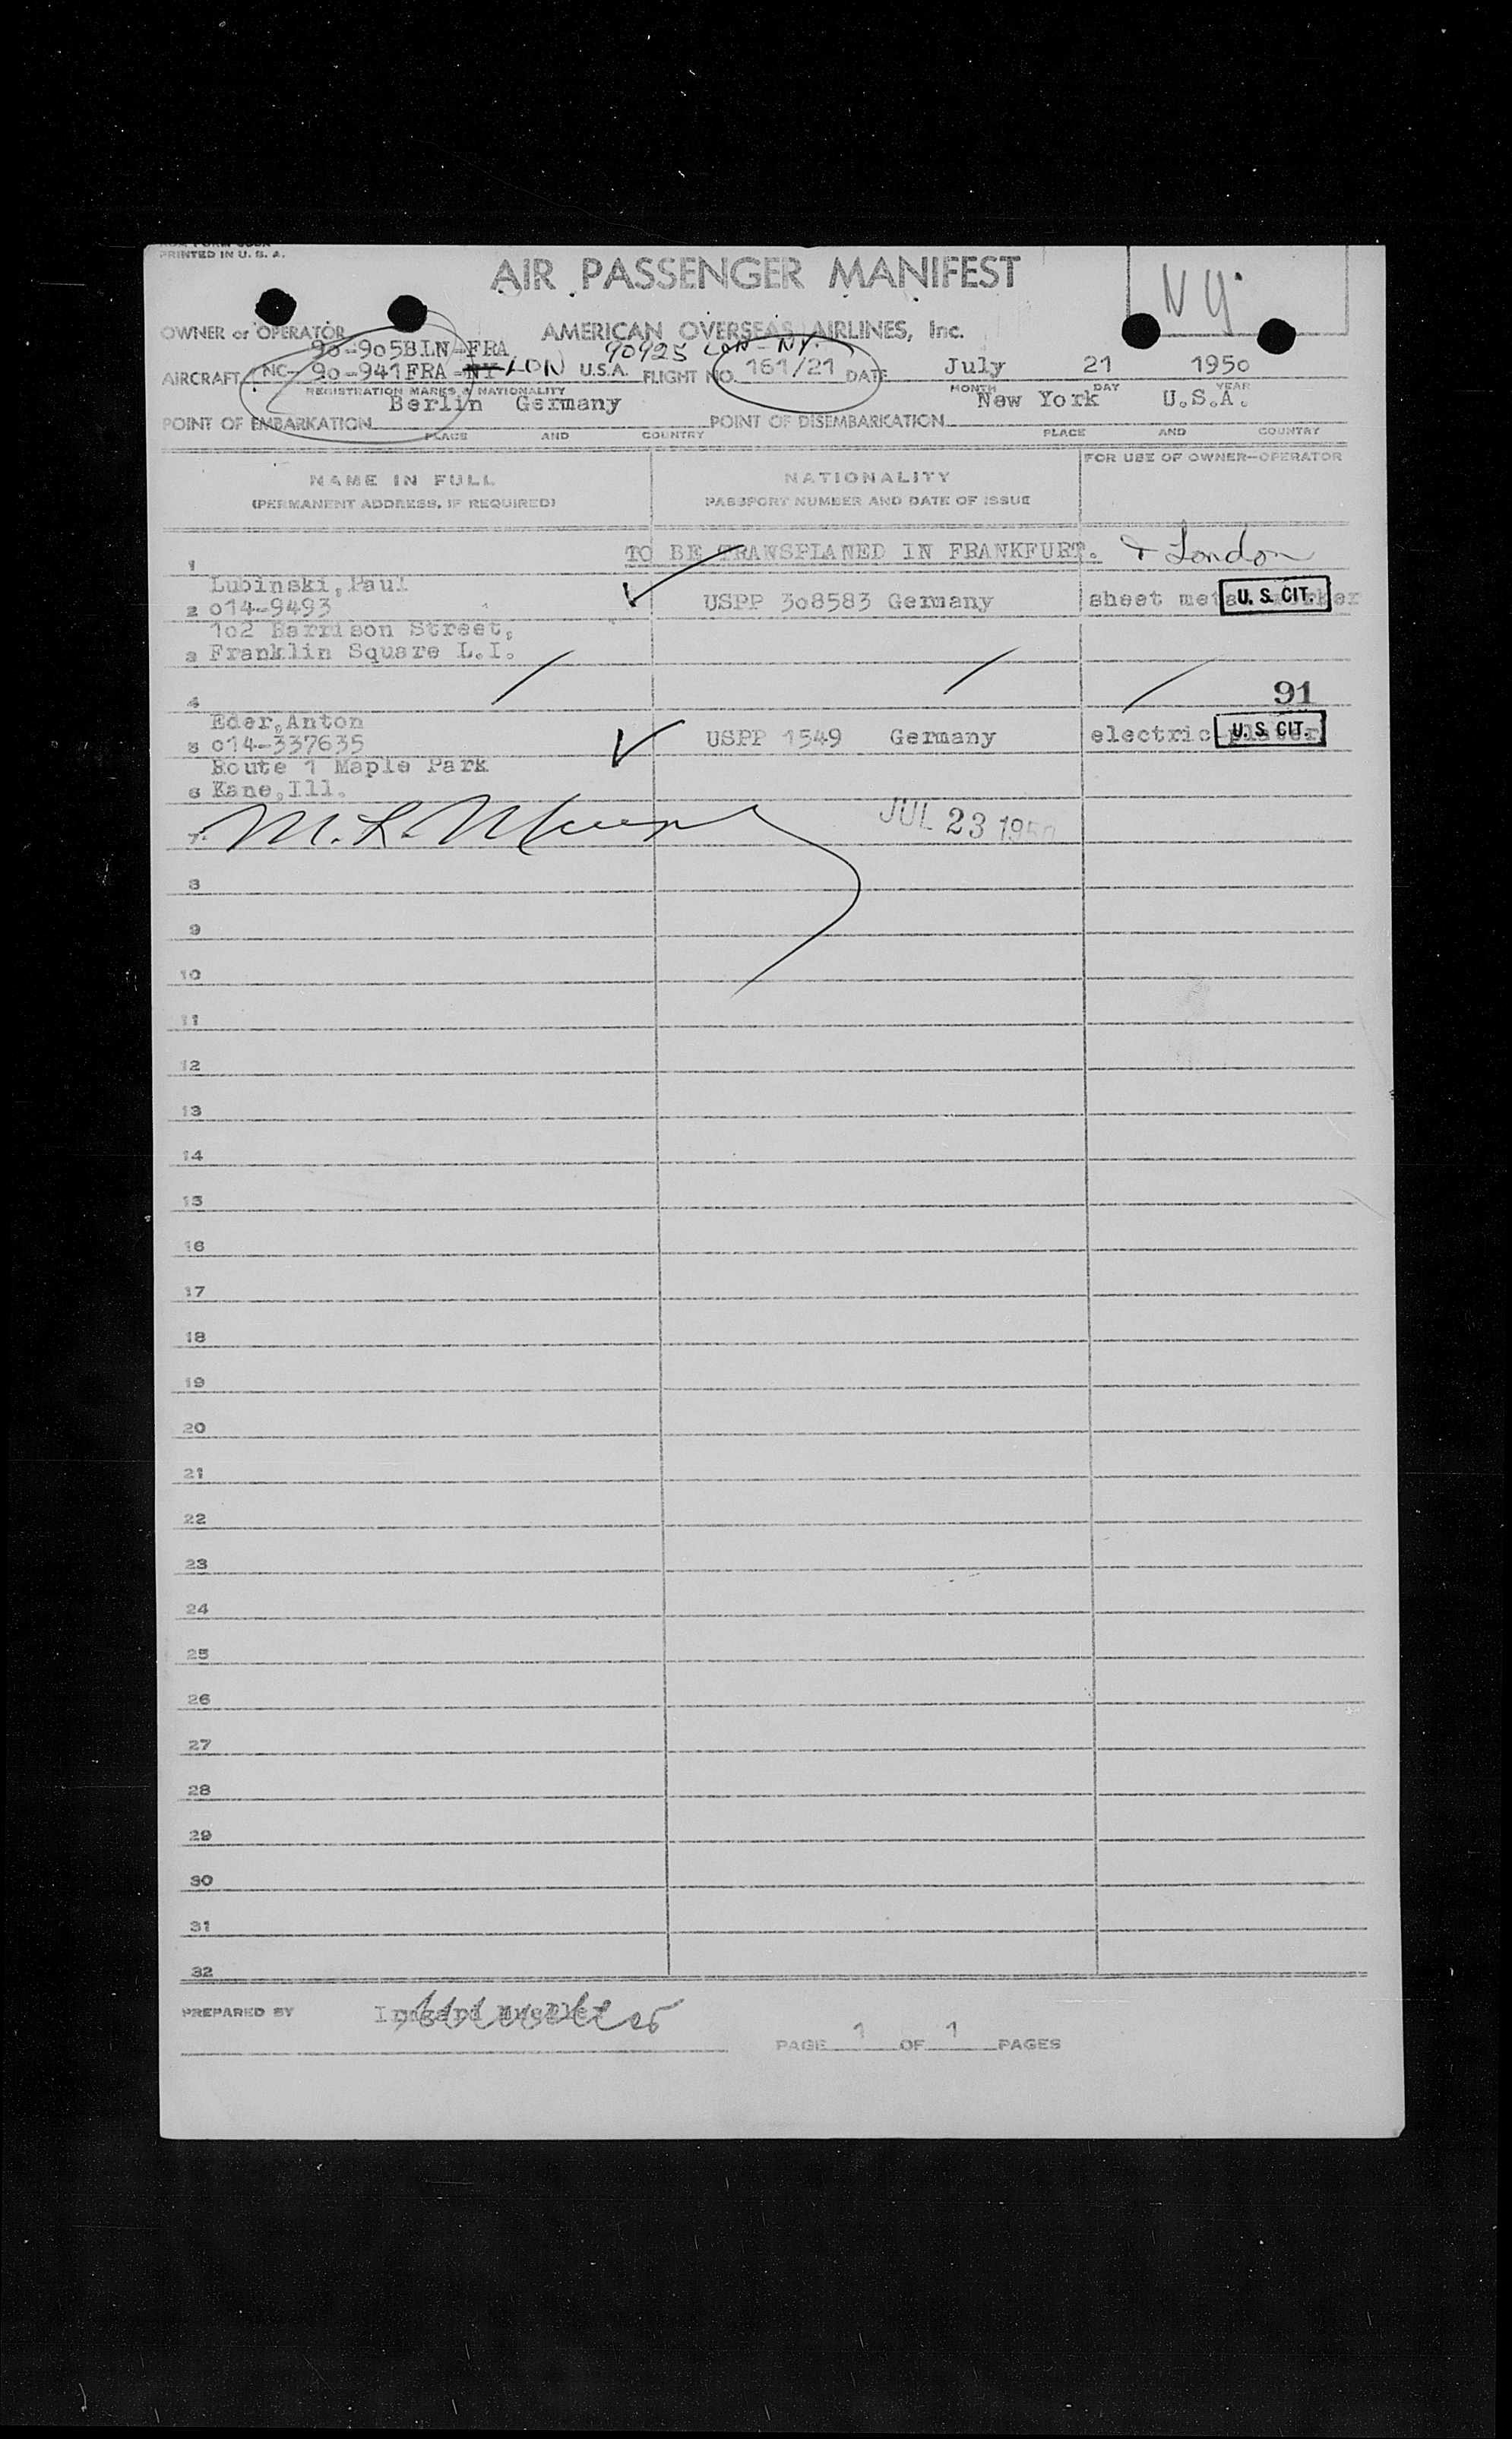 PRINTED IN U. S. A.
AIR PASSENGER MANIFEST
NY.
OWNER or OPERATOR AMERICAN OVERSEAS AIRLINES, Inc.
90-905BLN-FRA 90925 LON-NY.
AIRCRAFT NC- 90-941FRA-NY LON U.S.A. FLIGHT NO. 161/21 DATE July 21 1950
REGISTRATION MARKS & NATIONALITY MONTH DAY YEAR
Berlin Germany New York U.S.A.
POINT OF EMBARKATION POINT OF DISEMBARKATION
PLACE AND COUNTRY PLACE AND COUNTRY
NAME IN FULL NATIONALITY FOR USE OF OWNER-OPERATOR
(PERMANENT ADDRESS, IF REQUIRED) PASSPORT NUMBER AND DATE OF ISSUE
1 TO BE TRANSPLANED IN FRANKFURT. & London
Lubinski,Paul
2 014-9493 USPP 308583 Germany sheet metal worker U. S. CIT.
102 Harrison Street,
3 Franklin Square L.I.
4 91
Eder,Anton
5 014-337635 USPP 1549 Germany electric plater U. S. CIT.
Route 1 Maple Park
6 Kane,Ill.
7 M. L. JUL 23 1950
8
9
10
11
12
13
14
15
16
17
18
19
20
21
22
23
24
25
26
27
28
29
30
31
32
PREPARED BY Irmgard Mueller
PAGE 1 OF 1 PAGES